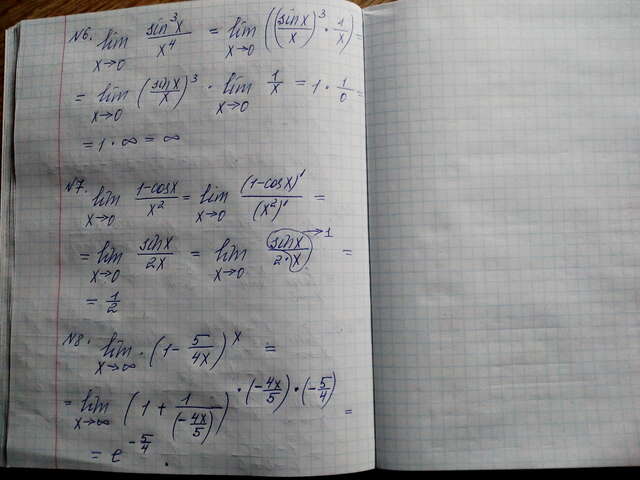 №6. lim x→0 sin³x / x⁴ = lim x→0 ((sinx / x)³ · 1/x) =
= lim x→0 (sinx / x)³ · lim x→0 1/x = 1 · 1/0 =
= 1 · ∞ = ∞
№7. lim x→0 1-cosx / x² = lim x→0 (1-cosx)' / (x²)' =
= lim x→0 sinx / 2x = lim x→0 sinx / 2·x →1 =
= 1/2
№8. lim x→∞ · (1 - 5/4x)^x =
= lim x→∞ (1 + 1/(-4x/5))^·(-4x/5)·(-5/4) =
= e^-5/4 .